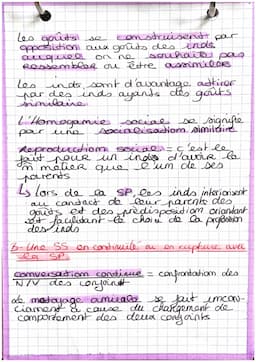 Les goûts se construisent par
opposition aux goûts des inds
auxquels on ne souhaite pas
ressembler ou être assimiler
Les inds sont d'avantage attirer
par des inds ayants des goûts
similaire
L'Homogamie sociale se signifie
par une socialisation similaire
Reproduction sociale = c'est le
fait pour un inds d'avoir le
m métier que l'un de ses
parents
↳ lors de la SP, les inds interiorisent
au contact de leur parents des
goûts et des prédisposition orientant
et facilitant le choix de la profession
des inds
6- Une SS en continuité ou en rupture avec
la SP
conversation continue = confrontation des
N/V des conjoint
Le matayage amicale se fait incon-
ciament à cause du changement de
comportement des deux conjoints